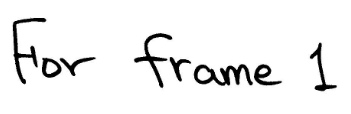 For frame 1